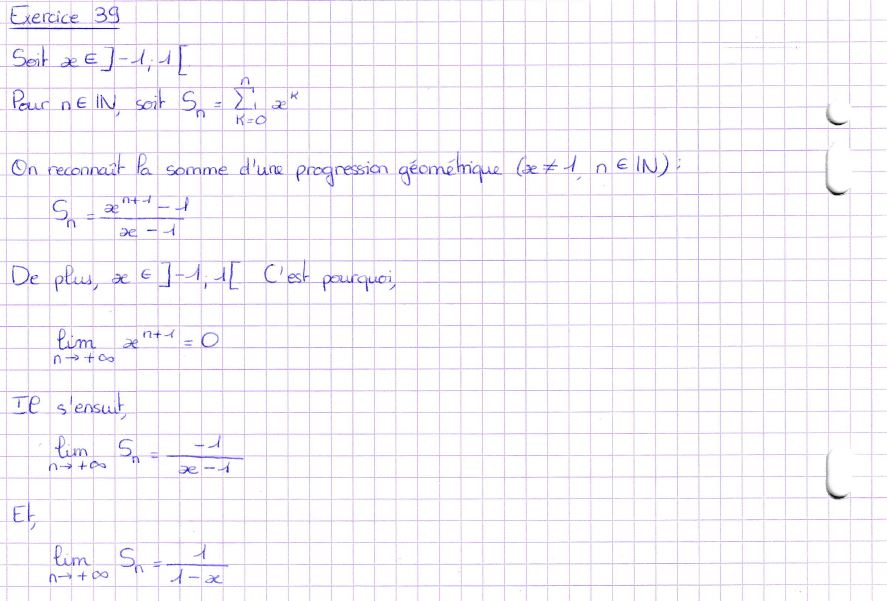 Exercice 39
Soit x ∈ ]-1; 1[
Pour n ∈ ℕ, soit S_n = ∑_{K=0}^{n} x^K
On reconnaît la somme d'une progression géométrique (x ≠ 1, n ∈ ℕ) :
S_n = \frac{x^{n+1} - 1}{x - 1}
De plus, x ∈ ]-1; 1[ C'est pourquoi,
lim_{n→+∞} x^{n+1} = 0
Il s'ensuit,
lim_{n→+∞} S_n = \frac{-1}{x - 1}
Et,
lim_{n→+∞} S_n = \frac{1}{1 - x}